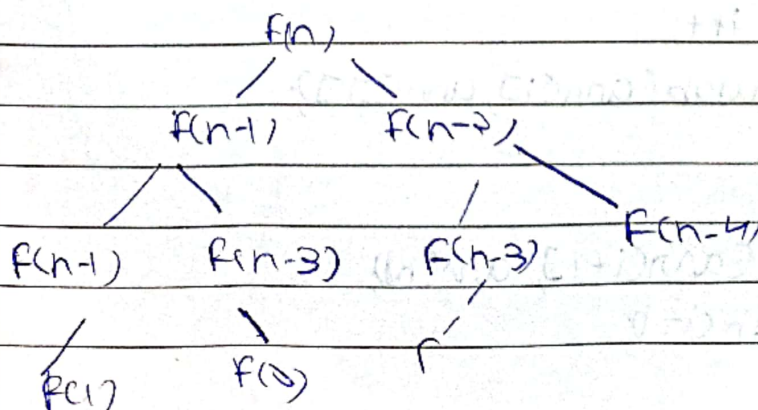 f(n)
f(n-1) f(n-2)
F(n-4)
f(n-1) f(n-3) f(n-3)
f(1) f(0)